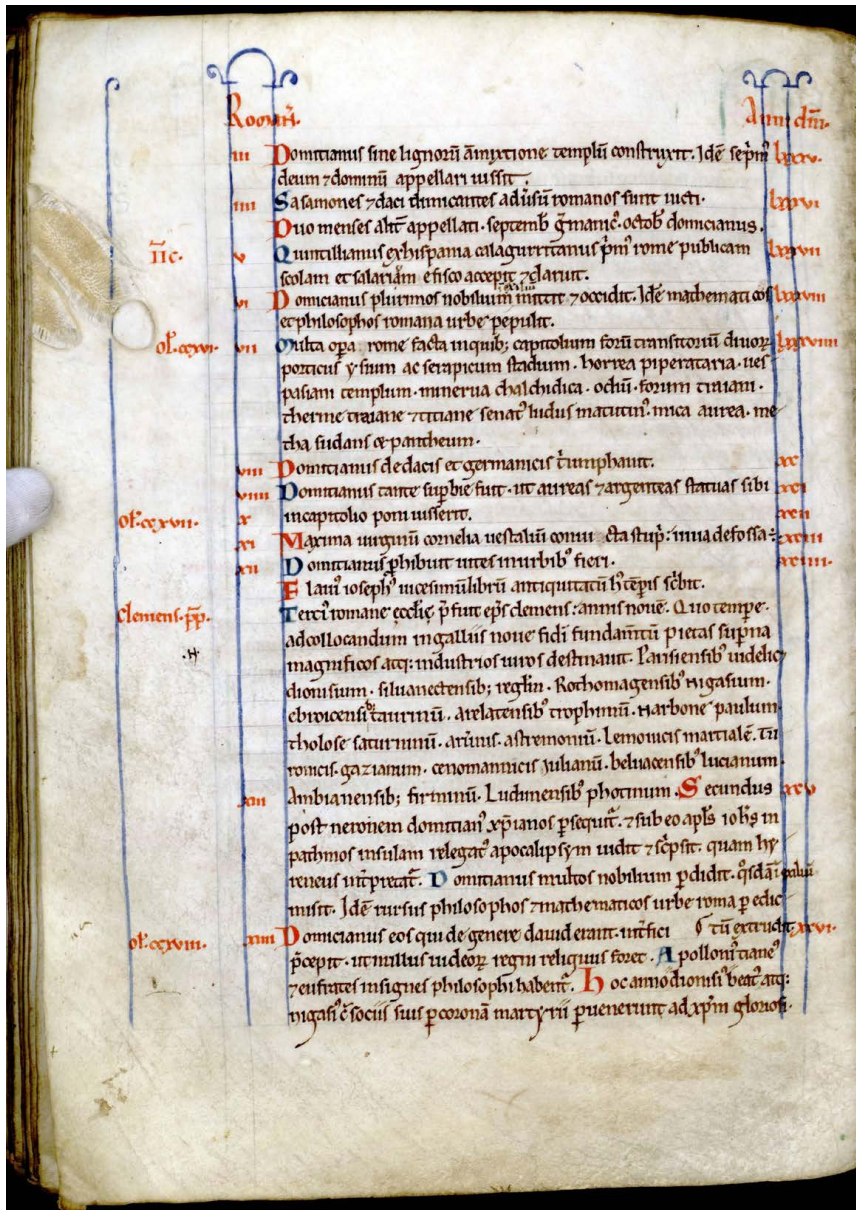 Romani. Anni dñi.
iii Domitianus sine lignorū āmixtione templū construxit. Idē se p̄mꝰ lxxxv.
deum ⁊ dominū appellari iussit.
iiii Sasamones ⁊ daci dimicantes aduʼsū romanos sunt uicti. lxxxvi
Duo menses alit̄ appellati. septemb̄ ḡmanicꝰ. octob̄ domicianus.
īīc. v Quintillianus ex hispania calagurritanus p̄mꝰ rome publicam lxxxvii
scolam et salariū e fisco accepit ⁊ claruit.
vi Domicianus plurimos nobiliūm in exiliū mittit ⁊ occidit. Idē mathematicos lxxxviii
et philosophos romana urbe pepulit.
ol̄. ccxvi. vii Multa oꝑa rome facta in quib; capitolium forū transitoriū diuoꝝ lxxxviiii
porticus ysium ac serapicum stadium. horrea piperataria. ues
pasiani templum. minerua chalchidica. odiū. forum traiani.
therme traiane ⁊ titiane senatꝰ ludus matutinꝰ. mica aurea. me
tha sudans ⁊ pantheum.
viii Domitianus de dacis et germanicis t̄umphauit. xc
viiii Domitianus tante suꝑbie fuit. ut aureas ⁊ argenteas statuas sibi xci
ol̄. ccxvii. x in capitolio poni iusserit. xcii
xi Maxima uirginū cornelia uestaliū conuicta stup̄: uiua defossa ÷ xciii
xii Domitianus ꝓhibuit uites in urbibꝰ fieri. xciiii.
Flauiꝰ iosephꝰ uicesimū librū antiquitatū h̄ tēpris sc̄bit.
Clemens. p̄p̄. Terciꝰ romane ecclię p̄fuit ep̄s clemens: annis nouē. Quo tempore.
ad collocandum in galliis noue fidei fundam̄tū pietas suꝑna
.H. magnificos atq: industrios uiros destinauit. Parisiensibꝰ uidelic⁊
dionisium. siluanectensib; regl̄m. Rothomagensibꝰ nigasium.
ebroicensibꝰ taurinū. arelatensibꝰ trophimū. narbone paulum
tholose saturninū. aruernis. astremoniū. lemouicis martialē. Tu
ronicis. gazianum. cenomannicis iulianū. beluacensibꝰ lucianum
xiii Ambianensib; firminū. Ludunensibꝰ photinum. Secundus xcv
post neronem domitianꝰ xp̄ianos ꝑsequit̄. ⁊ sub eo apl̄s ioh̄s in
pathmos insulam relegatꝰ apocalipsym uidit ⁊ sc̄psit. quam hy
reneus int̄pretat̄. Domitianus multos nobilium ꝑdidit. q̄sdā ī exiliū
misit. Idē rursus philosophos ⁊ mathematicos urbe roma ꝑ edic
ol̄. ccxviii. xiiii Domicianus eos qui de genere dauid erant. int̄fici tū extrudit xcvi.
p̄cepit. ut nullus iudeoꝝ regni reliquus foret. Apolloniꝰ tianeꝰ
⁊ eufrates insignes philosophi habent̄. Hoc anno dionisiꝰ beatꝰ atq:
nigasiꝰ c̄ sociis suis ꝑ coronā martyrii ꝑuenerunt ad xp̄m gloriosi.